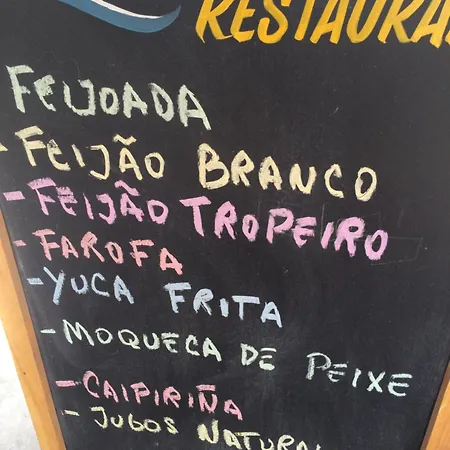 RESTAURA
FEIJOADA
- FEIJÃO BRANCO
- FEIJÃO TROPEIRO
- FAROFA
- YUCA FRITA
- MOQUECA DE PEIXE
- CAIPIRIÑA
- JUGOS NATURA